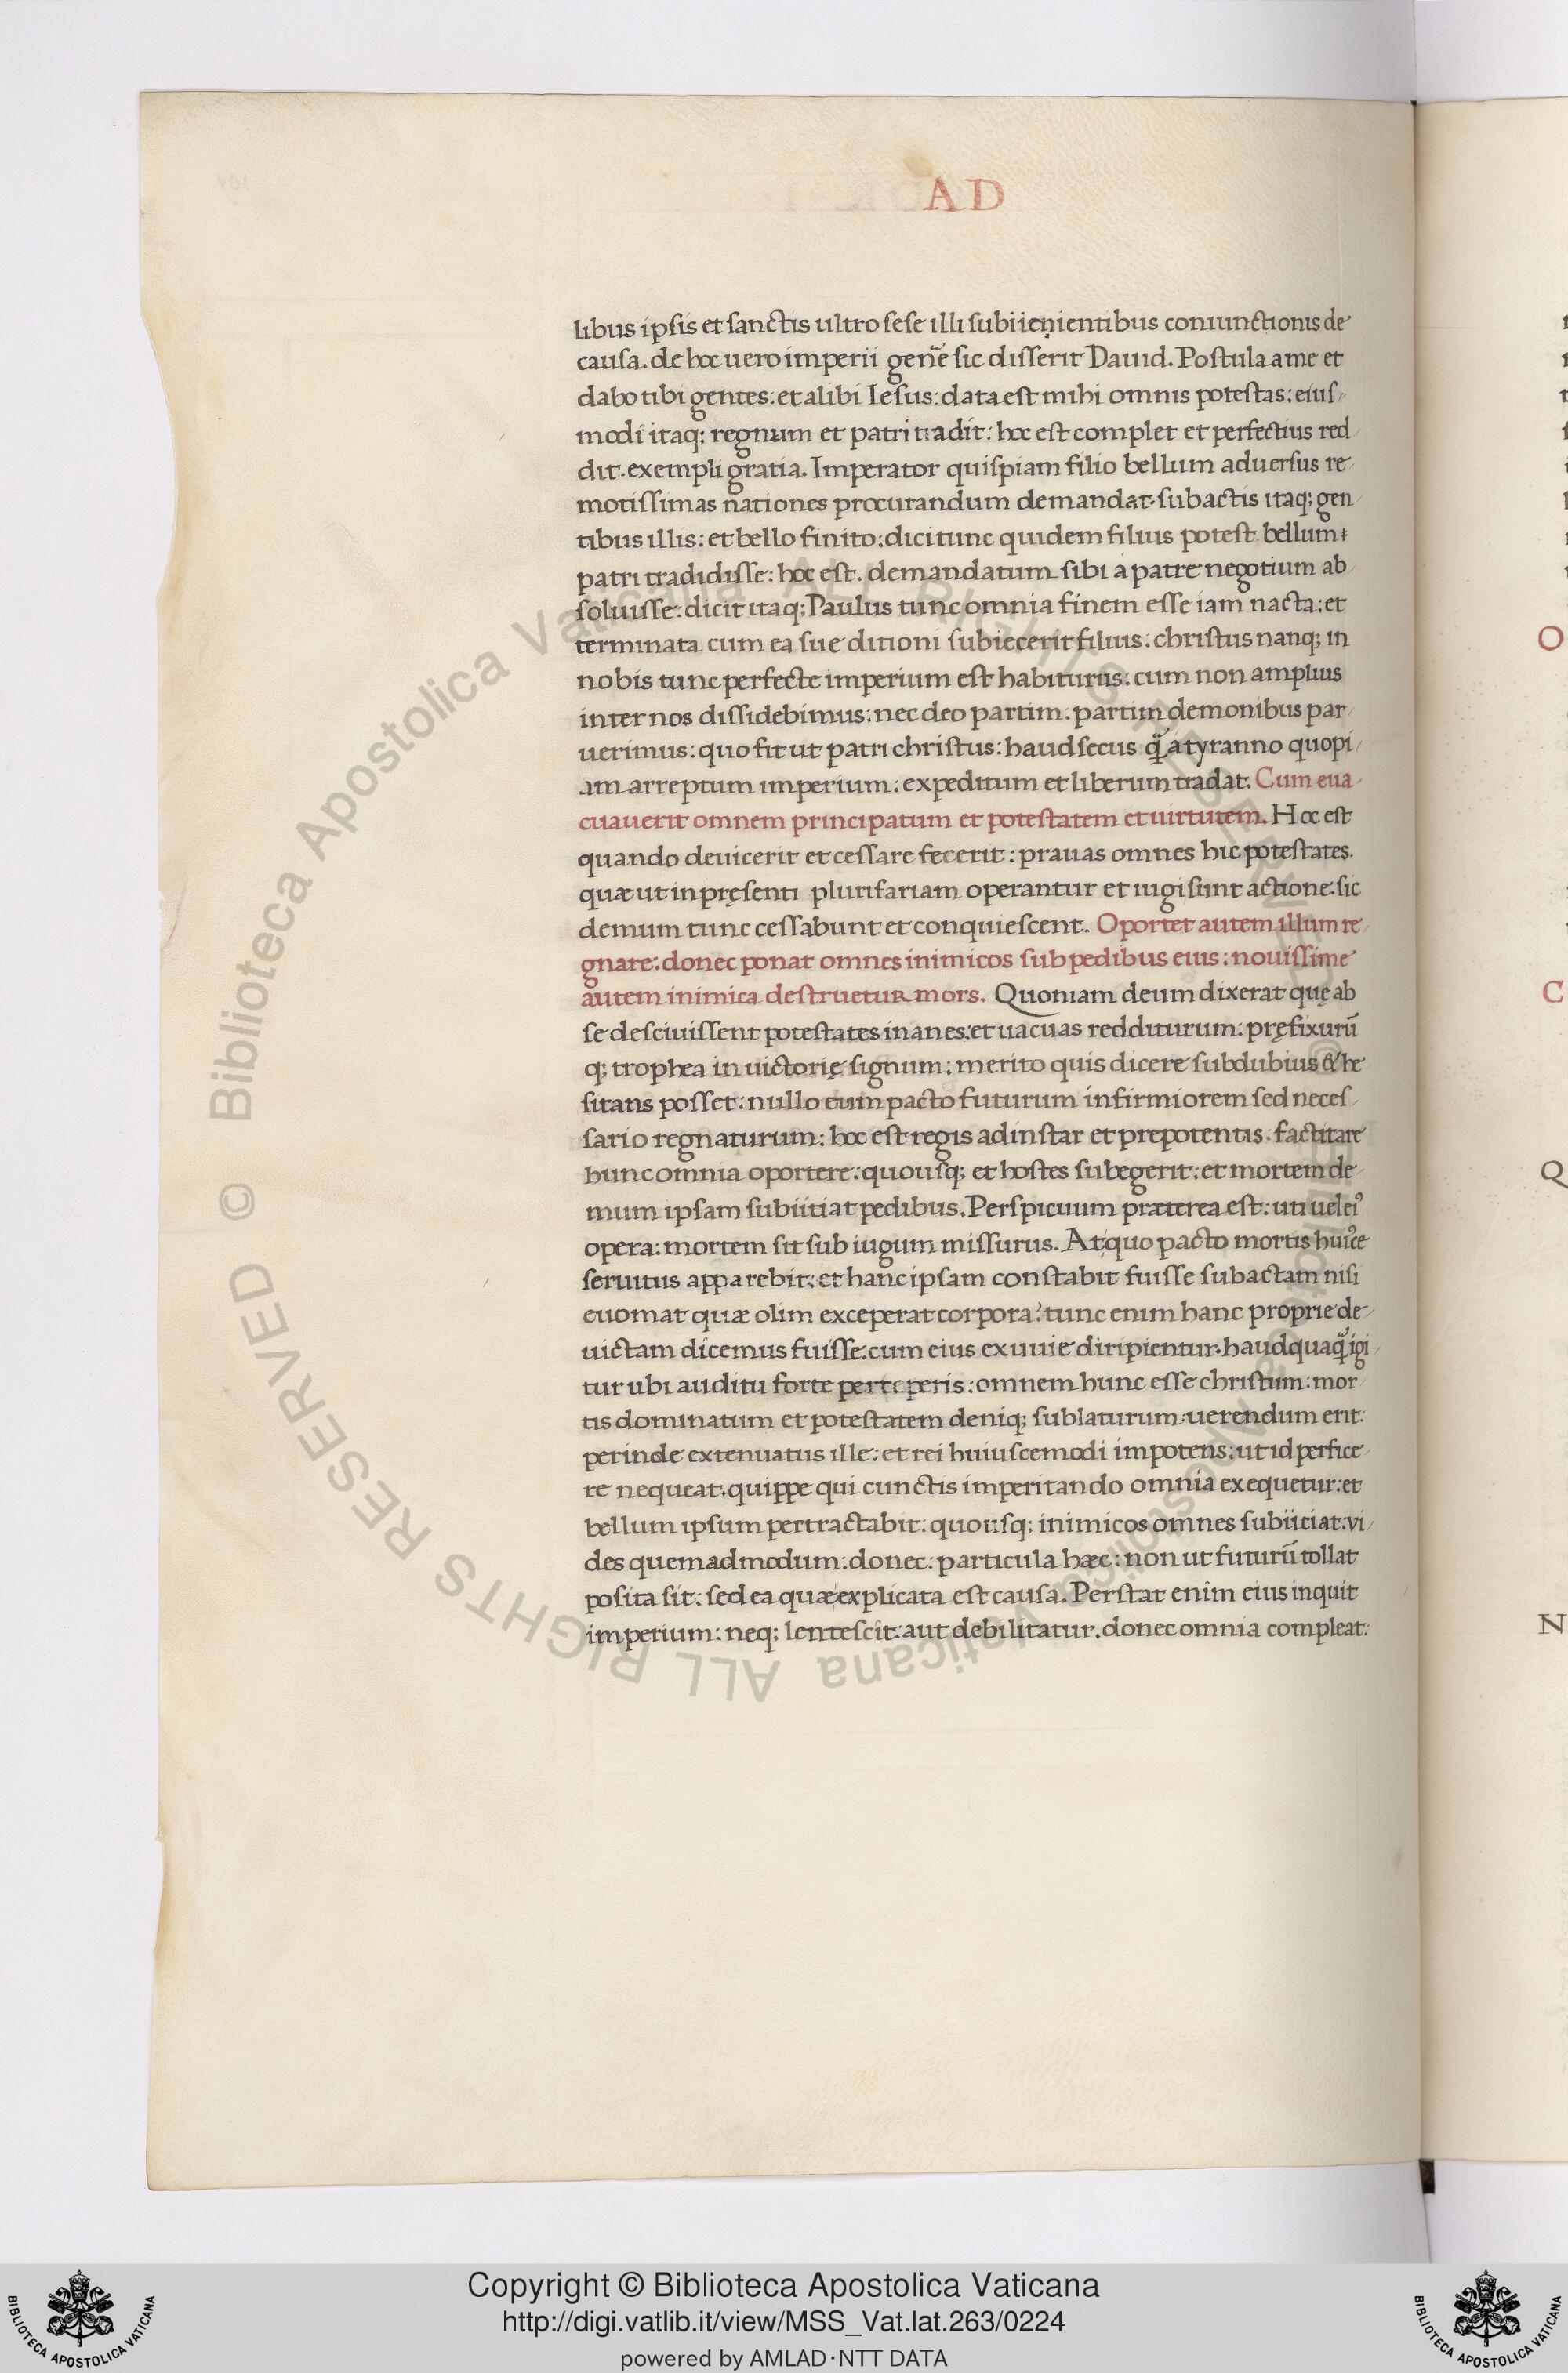 AD
libus ipsis et sanctis ultro sese illi subiicientibus coniunctionis de
causa. de hoc uero imperii gene sic disserit Dauid. Postula a me et
dabo tibi gentes: et alibi Iesus: data est mihi omnis potestas: eius-
modi itaq; regnum et patri tradit: hoc est complet et perfectius red-
dit. exempli gratia. Imperator quispiam filio bellum aduersus re-
motissimas nationes procurandum demandat. subactis itaq; gen-
tibus illis: et bello finito: dici tunc quidem filius potest bellum
patri tradidisse: hoc est. demandatum sibi a patre negotium ab-
soluisse: dicit itaq; Paulus tunc omnia finem esse iam nacta: et
terminata cum ea sue ditioni subiecerit filius: christus nanq; in
nobis tunc perfecte imperium est habiturus: cum non amplius
inter nos dissidebimus: nec deo partim: partim demonibus par-
uerimus: quo fit ut patri christus: haud secus q̃ a tyranno quopi-
am arreptum imperium: expeditum et liberum tradat. Cum eua-
cuauerit omnem principatum et potestatem et uirtutem. Hoc est
quando deuicerit et cessare fecerit: prauas omnes hic potestates.
quæ ut in pręsenti plurifariam operantur et iugi sunt actione: sic
demum tunc cessabunt et conquiescent. Oportet autem illum re-
gnare: donec ponat omnes inimicos sub pedibus eius: nouissime
autem inimica destruetur mors. Quoniam deum dixerat quę ab
se desciuissent potestates inanes: et uacuas redditurum: pręfixurū
q; trophea in uictorię signum: merito quis dicere subdubius & he
sitans posset: nullo eum pacto futurum infirmiorem sed neces-
sario regnaturum: hoc est regis ad instar et prepotentis. factitare
hunc omnia oportere: quousq; et hostes subegerit: et mortem de-
mum ipsam subiitiat pedibus. Perspicuum præterea est: uti uel ei⁹
opera: mortem sit sub iugum missurus. At quo pacto mortis hui⁹ce
seruitus apparebit: et hanc ipsam constabit fuisse subactam nisi
euomat quæ olim exceperat corpora? tunc enim hanc proprie de-
uictam dicemus fuisse. cum eius exuuie diripientur. haudquaq̃ igi-
tur ubi auditu forte perceperis: omnem hunc esse christum: mor-
tis dominatum et potestatem deniq; sublaturum: uerendum erit:
perinde extenuatus ille: et rei huiuscemodi impotens: ut id perfice-
re nequeat. quippe qui cunctis imperitando omnia exequetur: et
bellum ipsum pertractabit: quousq; inimicos omnes subiiciat: vi-
des quemadmodum: donec: particula hæc: non ut futurū tollat
posita sit: sed ea quæ explicata est causa. Perstat enim eius inquit
imperium: neq; lentescit: aut debilitatur. donec omnia compleat:
O
C
Q
N
© Biblioteca Apostolica Vaticana ALL RIGHTS RESERVED
© Biblioteca Apostolica Vaticana ALL RIGHTS RESERVED
Copyright © Biblioteca Apostolica Vaticana
http://digi.vatlib.it/view/MSS_Vat.lat.263/0224
powered by AMLAD·NTT DATA
BIBLIOTECA APOSTOLICA VATICANA
BIBLIOTECA APOSTOLICA VATICANA